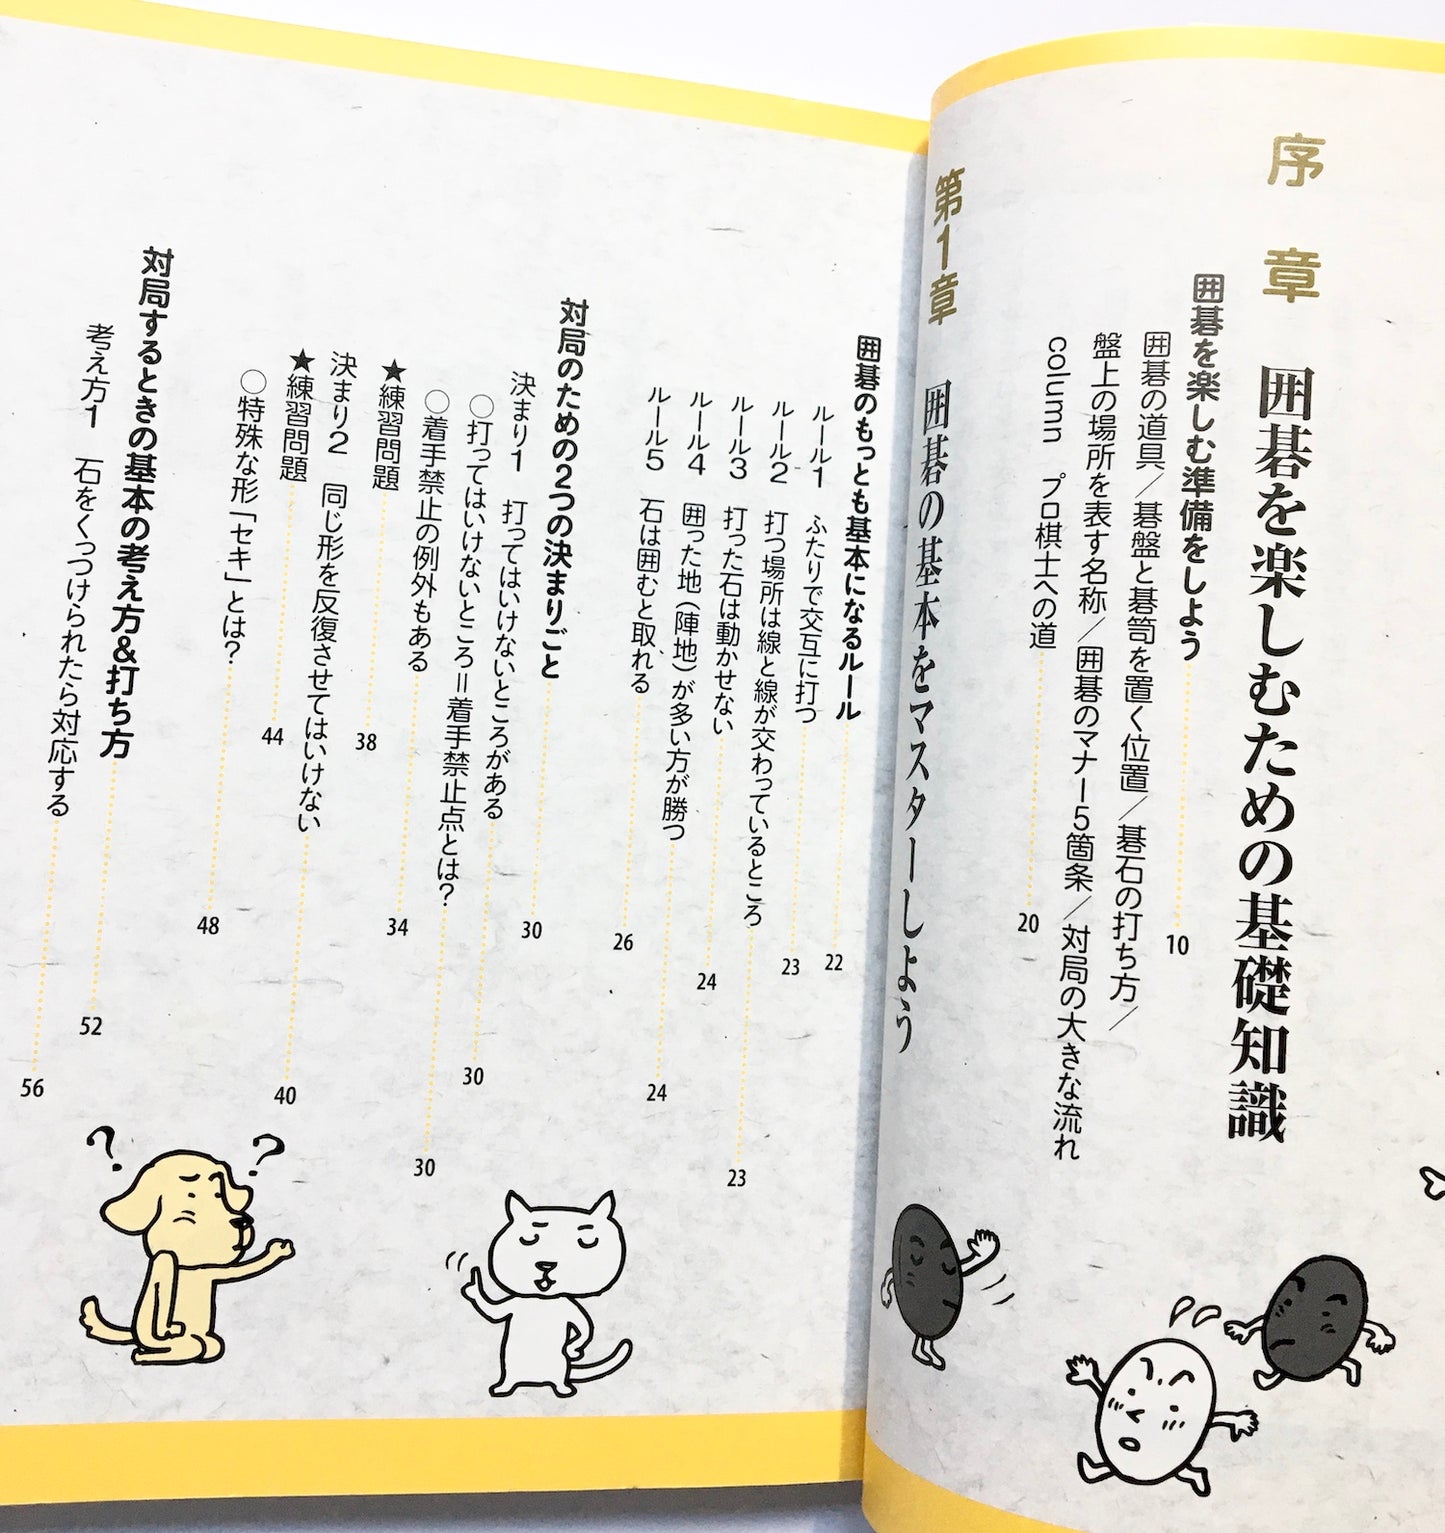 序章 囲碁を楽しむための基礎知識
囲碁を楽しむ準備をしよう 10
囲碁の道具／碁盤と碁笥を置く位置／碁石の打ち方／
盤上の場所を表す名称／囲碁のマナー5箇条／対局の大きな流れ
column プロ棋士への道 20
第1章 囲碁の基本をマスターしよう
囲碁のもっとも基本になるルール 22
ルール1 ふたりで交互に打つ 23
ルール2 打つ場所は線と線が交わっているところ 23
ルール3 打った石は動かせない 24
ルール4 囲った地（陣地）が多い方が勝つ 24
ルール5 石は囲むと取れる 26
対局のための2つの決まりごと 30
決まり1 打ってはいけないところがある 30
○打ってはいけないところ＝着手禁止点とは？ 30
○着手禁止の例外もある 34
★練習問題 38
決まり2 同じ形を反復させてはいけない 40
★練習問題 44
○特殊な形「セキ」とは？ 48
対局するときの基本の考え方＆打ち方 52
考え方1 石をくっつけられたら対応する 56
? ?